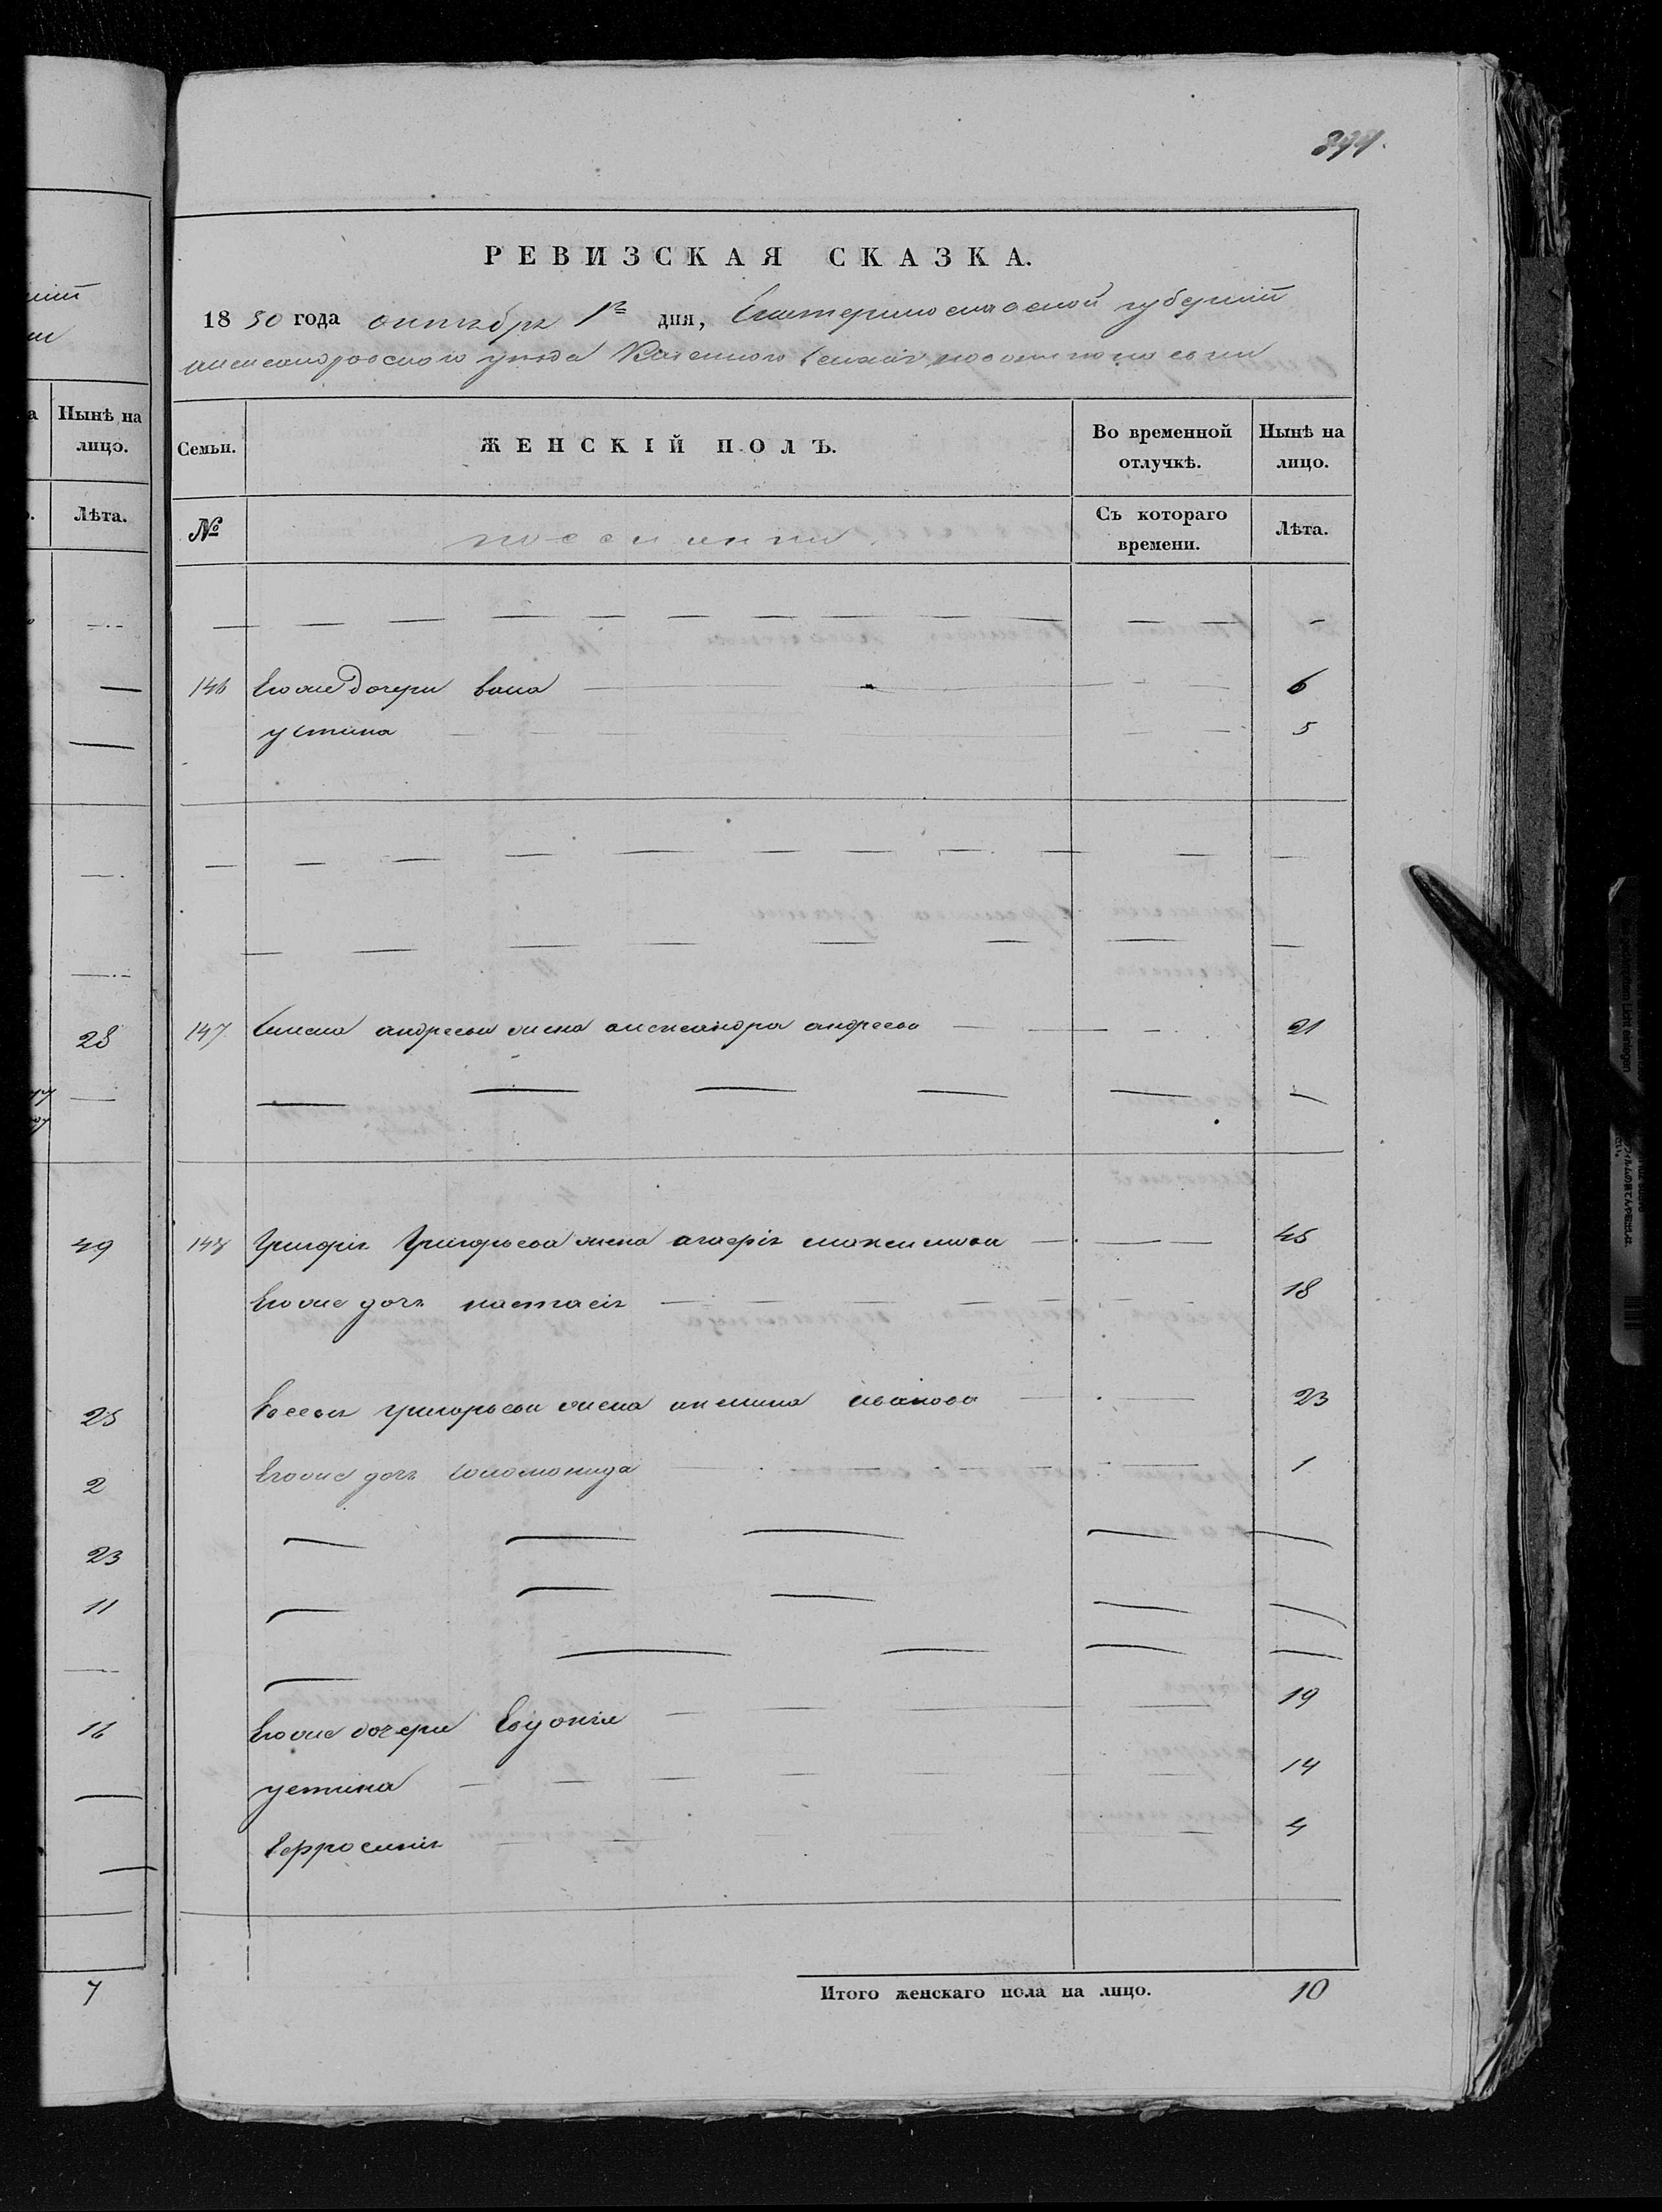 РЕВИЗСКАЯ СКАЗКА.
1850 года октября 1го дня, Екатеринославской губернии
александровского уезда Казенного селения
Семьи.
ЖЕНСКІЙ ПОЛЪ.
Во временной отлучкѣ.
Нынѣ на лицо.
№
поселянки
Съ котораго времени.
Лѣта.
146 Его же дочери 6
устина 5
147 андреева жена александра андреева 21
148 Григорія Григорьева жена агафія максимова 45
Его же дочь настасія 18
Евсея григорьева жена акилина иванова 23
Его же дочь соломонида 1
Его же дочери Евдокія 19
устина 14
Ефросинія 4
Итого женскаго пола на лицо. 10
Нынѣ на лицо.
Лѣта.
28
49
25
2
23
11
16
7